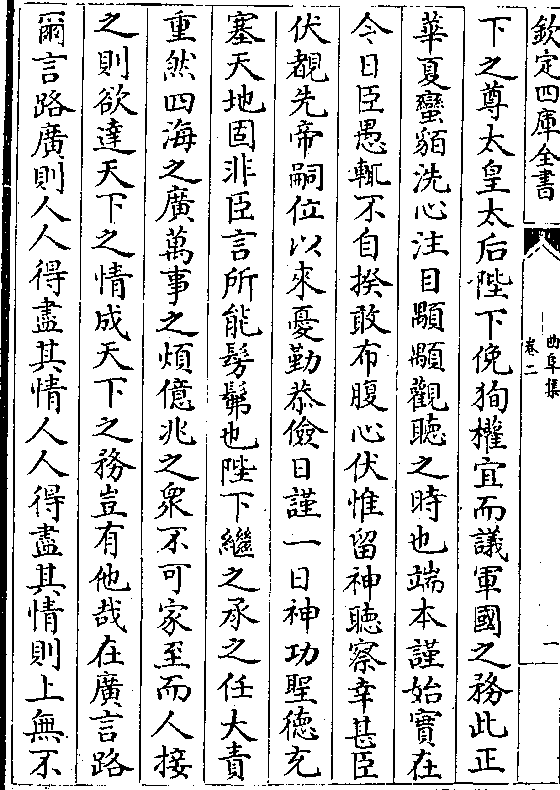 欽定四庫全書
曲阜集
卷二
一
下之尊太皇太后陛下俛狥權宜而議軍國之務此正
華夏蠻貊洗心注目顒顒觀聽之時也端本謹始實在
今日臣愚輒不自揆敢布腹心伏惟留神聽察幸甚臣
伏覩先帝嗣位以來憂勤恭儉日謹一日神功聖德充
塞天地固非臣言所能髣髴也陛下繼之承之任大責
重然四海之廣萬事之煩億兆之衆不可家至而人接
之則欲達天下之情成天下之務豈有他哉在廣言路
爾言路廣則人人得盡其情人人得盡其情則上無不